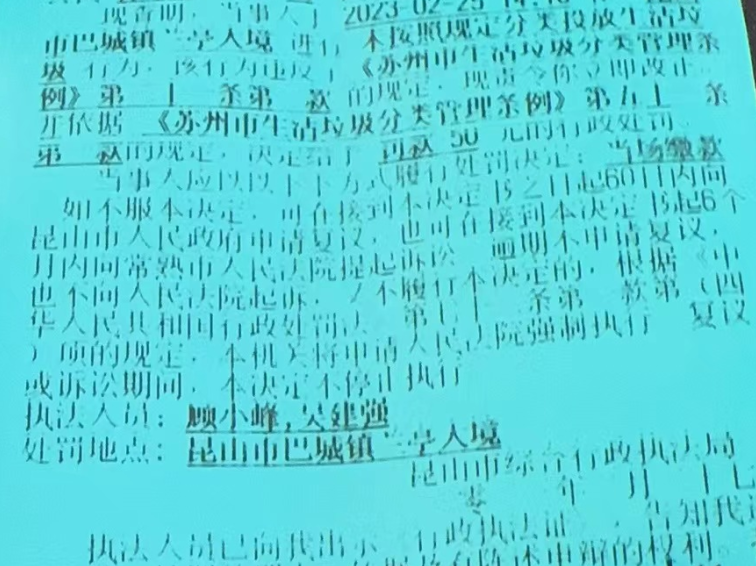 现查明，当事人于 2023-02-25
市巴城镇兰亭人境 进行 未按照规定分类投放生活垃
圾 行为，该行为违反了《苏州市生活垃圾分类管理条
例》第 十 条第 款 的规定，现责令你立即改正
并依据 《苏州市生活垃圾分类管理条例》第五十 条
第 款的规定，决定给予 罚款 50 元的行政处罚
当事人应以以下方式履行处罚决定：当场缴款
如不服本决定，可在接到本决定书之日起60日内向
昆山市人民政府申请复议，也可在接到本决定书起6个
月内向常熟市人民法院提起诉讼 逾期不申请复议，
也不向人民法院起诉，又不履行本决定的，根据《中
华人民共和国行政处罚法 第七十 条第 款第（四
）项的规定，本机关将申请人民法院强制执行 复议
或诉讼期间，本决定不停止执行
执法人员：顾小峰,吴建强
处罚地点：昆山市巴城镇兰亭人境
昆山市综合行政执法局
年 月 十七
执法人员已向我出示 行政执法证 ，告知我
陈述申辩的权利。